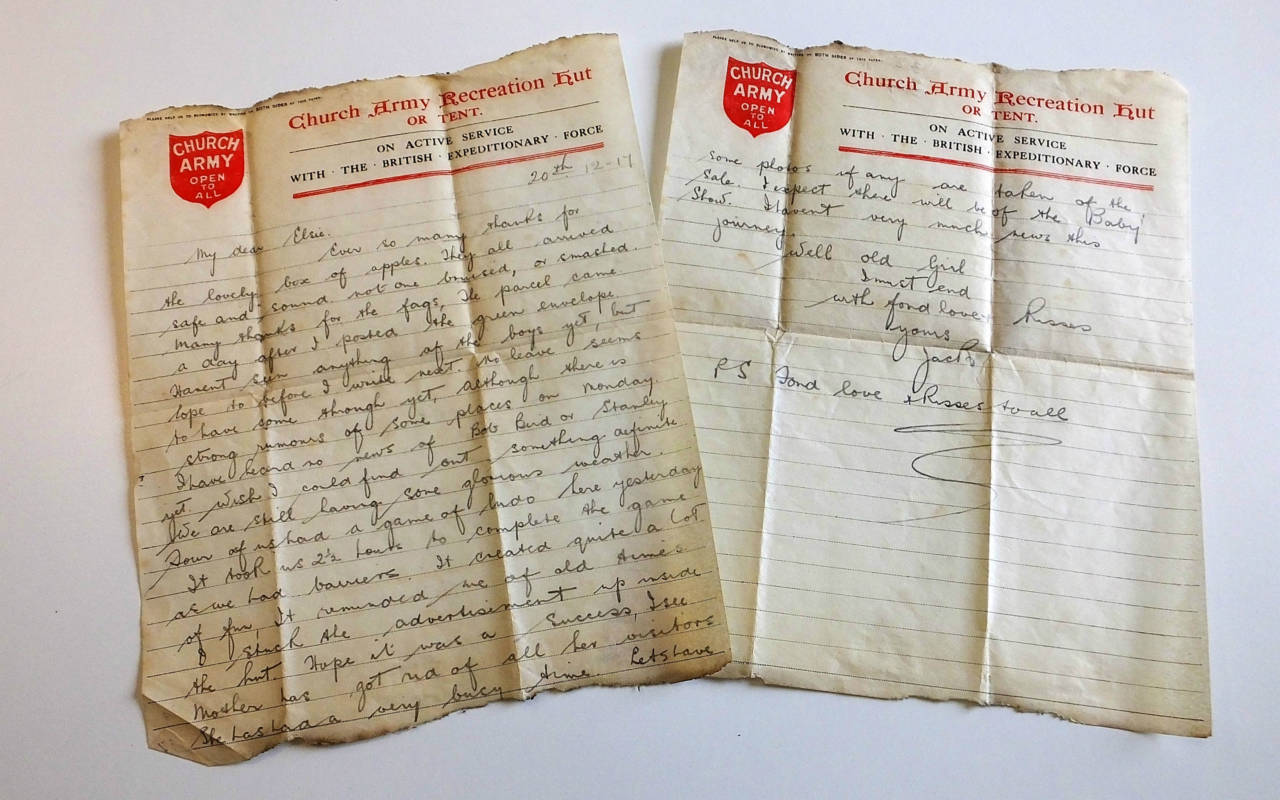 PLEASE HELP US TO ECONOMISE BY WRITING ON BOTH SIDES OF THIS PAPER.
CHURCH
ARMY
OPEN
TO
ALL
Church Army Recreation Hut
OR TENT.
ON ACTIVE SERVICE
WITH · THE · BRITISH · EXPEDITIONARY · FORCE
20th 12-17
My dear Elsie.
Ever so many thanks for
the lovely box of apples. They all arrived
safe and sound not one bruised, or smashed.
Many thanks for the fags, The parcel came
a day after I posted the green envelope.
Havent seen anything of the boys yet, but
hope to before I write next. No leave seems
to have come through yet, although there is
strong rumours of some places on Monday.
I have heard no news of Bob Bird or Stanley
yet. Wish I could find out something definite
We are still having some glorious weather.
Four of us had a game of Ludo here yesterday
It took us 2½ hours to complete the game
as we had barriers. It created quite a lot
of fun, It reminded me of old times
I stuck the advertisement up inside
the hut. Hope it was a success, I see
Mother has got rid of all her visitors
She has had a very busy time. Lets have
PLEASE HELP US TO ECONOMISE BY WRITING ON BOTH SIDES OF THIS PAPER.
CHURCH
ARMY
OPEN
TO
ALL
Church Army Recreation Hut
OR TENT.
ON ACTIVE SERVICE
WITH · THE · BRITISH · EXPEDITIONARY · FORCE
some photos if any are taken of the
Sale. I expect there will be of the 'Baby'
Show. I havent very much news this
journey.
Well old Girl
I must end
with fond love & Kisses
yours
Jack
PS Fond love & Kisses to all